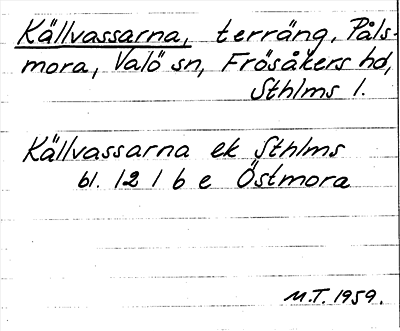 Källvassarna, terräng, Påls-
mora, Valö sn, Frösåkers hd,
Sthlms l.
Källvassarna ek Sthlms
bl. 12 I b e Östmora
M.T. 1959.